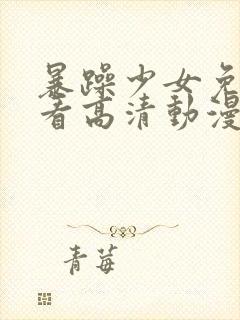 暴躁少女免
看高清動漫
青莓